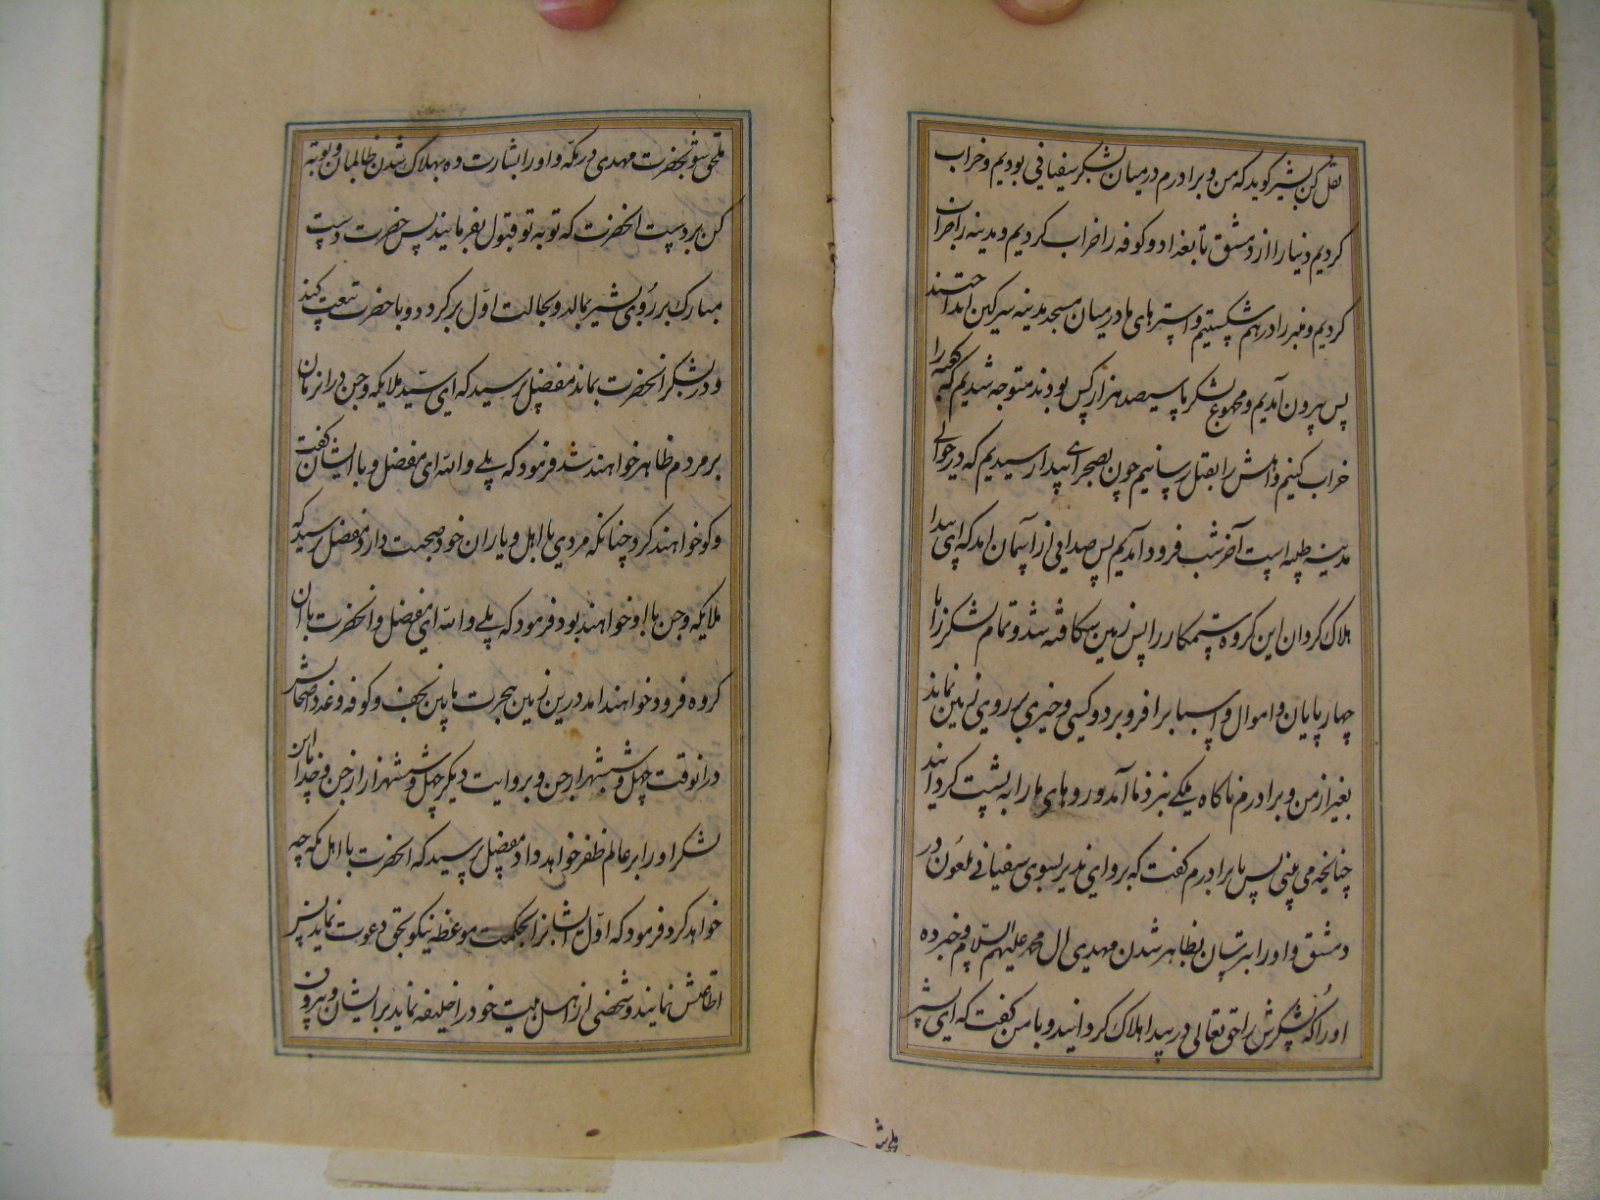 نقل کن بشیر کوید که من و برادرم در میان لشکر سفیانی بودیم و خراب
کردیم دنیا را از دمشق تا بغداد و کوفه را خراب کردیم و مدینه را خراب
کردیم و منبر را درهم شکستیم و استرهای ما در میان مسجد مدینه سرکین انداختند
پس بیرون آمدیم و مجموع لشکر ما سیصد هزار کس بودند متوجه شدیم که کعبه را
خراب کنیم و اهلش را بقتل رسانیم چون بصحرای بیدا رسیدیم که در حوالی
مدینه طیبه است آخر شب فرود آمدیم پس صدایی از آسمان آمد که ای بیدا
هلاک کردان این کروه ستمکار را پس زمین شکافته شد و تمام لشکر را با
چهارپایان و اموال و اسباب را فرو برد و کسی و چیزی بر روی زمین نماند
بغیر از من و برادرم ناکاه ملکی نزد ما آمد و روهای ما را به پشت کردانید
چنانچه می بینی پس با برادرم کفت که برو ای نذیر بسوی سفیانی ملعون در
دمشق و او را بترسان بظاهر شدن مهدی آل محمد علیهم السلام و خبر ده
او را که لشکرش را حق تعالی در بیدا هلاک کردانید و با من کفت که ای بشیر
ملحق شو
ملحق شو بحضرت مهدی در مکه و او را بشارت ده بهلاک شدن ظالمان و توبه
کن بر دست آنحضرت که توبه تو قبول بفرمایند پس حضرت دست
مبارک بر روی بشیر بمالد و بحالت اول بر کردد و با حضرت بیعت کند
و در لشکر آنحضرت بماند مفضل پرسید که ای سید ملایکه و جن در آن زمان
بر مردم ظاهر خواهند شد فرمود که بلے والله ای مفضل و با ایشان کفت
و کو خواهند کرد چنانکه مردی با اهل و یاران خود صحبت دارد مفضل پرسید که
ملایکه و جن با او خواهند بود فرمود که بلے والله ای مفضل و آنحضرت با آن
کروه فرود خواهند آمد در این زمین هجرت مابین نجف و کوفه و عدد اصحابش
در آنوقت چهل و شش هزار از جن و بروایت دیکر چهل و شش هزار از جن و خدا با این
لشکر او را بر عالم ظفر خواهد داد مفضل پرسید که آنحضرت با اهل مکه چه
خواهد کرد فرمود که اول ایشانرا بحکمت و موعظه نیکو بحق دعوت نماید پس
اطاعتش نمایند و شخصی از اهل بیت خود را خلیفه نماید بر ایشان و بیرون